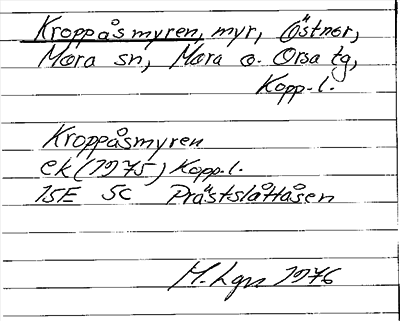 Kroppåsmyren, myr, Östnor,
Mora sn, Mora o. Orsa tg,
Kopp. l.
Kroppåsmyren
ek (1975) Kopp. l.
15E 5c Prästslåttåsen
M. Lgn 1976